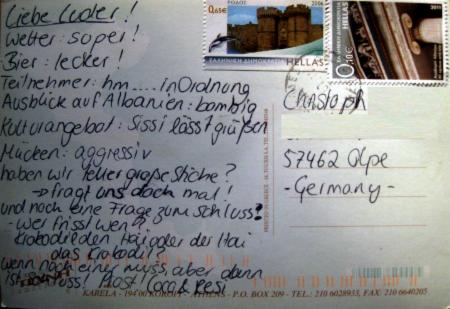 Liebe Luder!
Wetter: super!
Bier: lecker!
Teilnehmer: hm.... in Ordnung
Ausblick auf Albanien: bombig
Kulturangebot: Sissi lässt grüßen
Mücken: aggressiv
haben wir teller große Stiche?
→ fragt uns doch mal!
und noch eine Frage zum Schluss?
- wer frisst wen?
Krokodil den Hai oder der Hai
das Krokodil?
wenn noch einer muss, aber dann
ist Schluss! Prost! & Resi
0,65€
ΡΟΔΟΣ
2006
ΕΛΛΗΝΙΚΗ ΔΗΜΟΚΡΑΤΙΑ
HELLAS
0,10€
HELLAS
Christoph
57462 Olpe
-Germany-
KABELA - 194 00 KOROPI - ATHENS - P.O. BOX 209 - TEL.: 210 6028933, FAX: 210 6640205